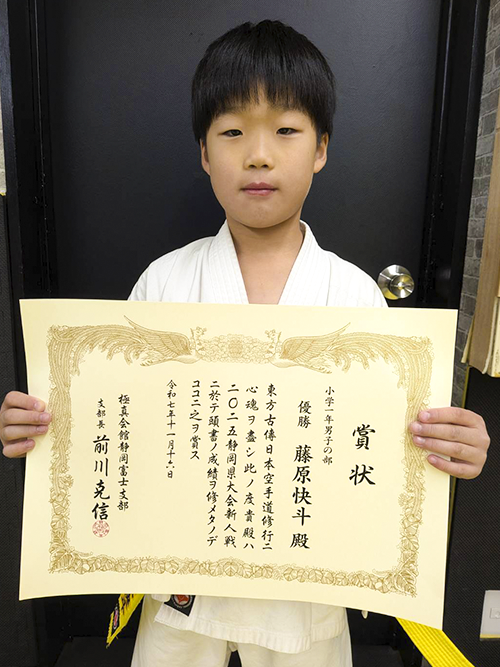 賞状
小学一年男子の部
優勝 藤原快斗殿
東方古傳日本空手道修行ニ
心魂ヲ盡シ此ノ度貴殿ハ
二〇二五静岡県大会新人戦
ニ於テ頭書ノ成績ヲ修メタノデ
ココニ之ヲ賞ス
令和七年十一月十六日
極真会館静岡富士支部
支部長 前川克信